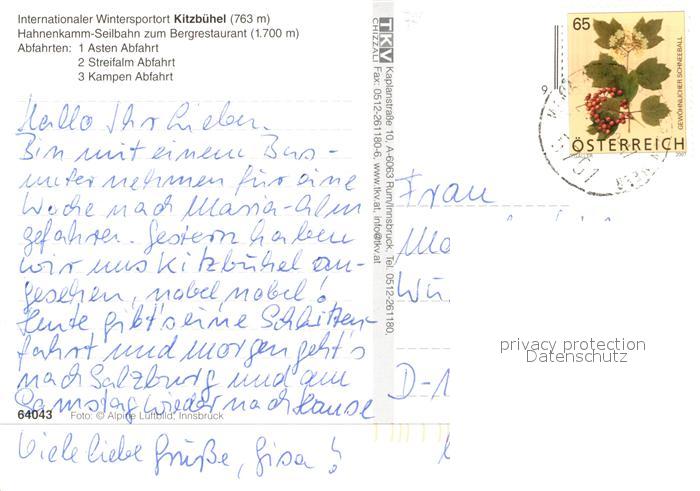 Internationaler Wintersportort Kitzbühel (763 m)
Hahnenkamm-Seilbahn zum Bergrestaurant (1.700 m)
Abfahrten: 1 Asten Abfahrt
2 Streifalm Abfahrt
3 Kampen Abfahrt
Hallo Ihr Lieben.
Bin mit einem Bus-
unternehmen für eine
Woche nach Maria-Alm
gefahren. Gestern haben
wir uns Kitzbühel an-
gesehen, nobel nobel!
Heute gibt's eine Schlitten-
fahrt und morgen geht's
nach Salzburg und am
Samstag wieder nach Hause
64043 Foto: © Alpine Luftbild, Innsbruck
Viele liebe Grüße, Gisa!
TKV
CHIZZALI
Kaplanstraße 10, A-6063 Rum/Innsbruck, Tel. 0512-261180,
Fax: 0512-261180-6, www.tkv.at, info@tkv.at
65
GEWÖHNLICHER SCHNEEBALL
ÖSTERREICH
2007
Frau
Ma
Wü
D-1
privacy protection
Datenschutz